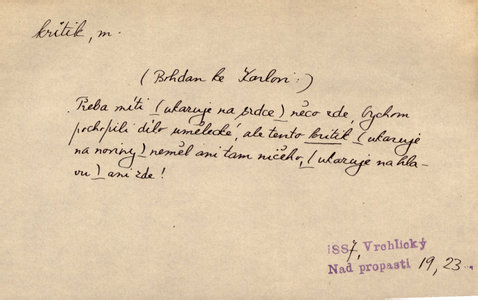 kritik, m.
(Bohdan ke Karlovi:)
Třeba míti (ukazuje na srdce) něco zde, bychom
pochopili dílo umělecké, ale tento kritik (ukazuje
na noviny) neměl ani tam ničeho, (ukazuje na hla-
vu) ani zde!
1887, Vrchlický
Nad propastí 19, 23